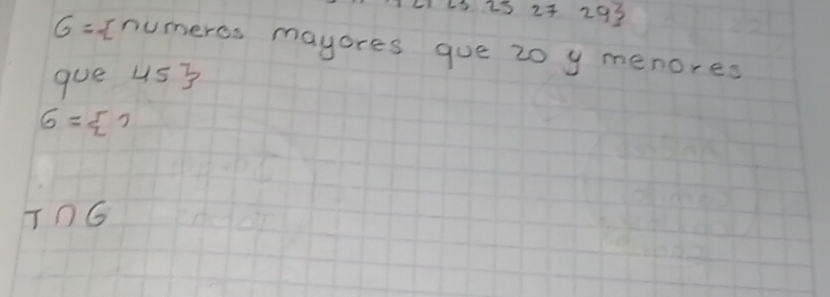 23 25 27 29}
G={numeros mayores que 20 y menores
que 45}
G={ }
T∩G